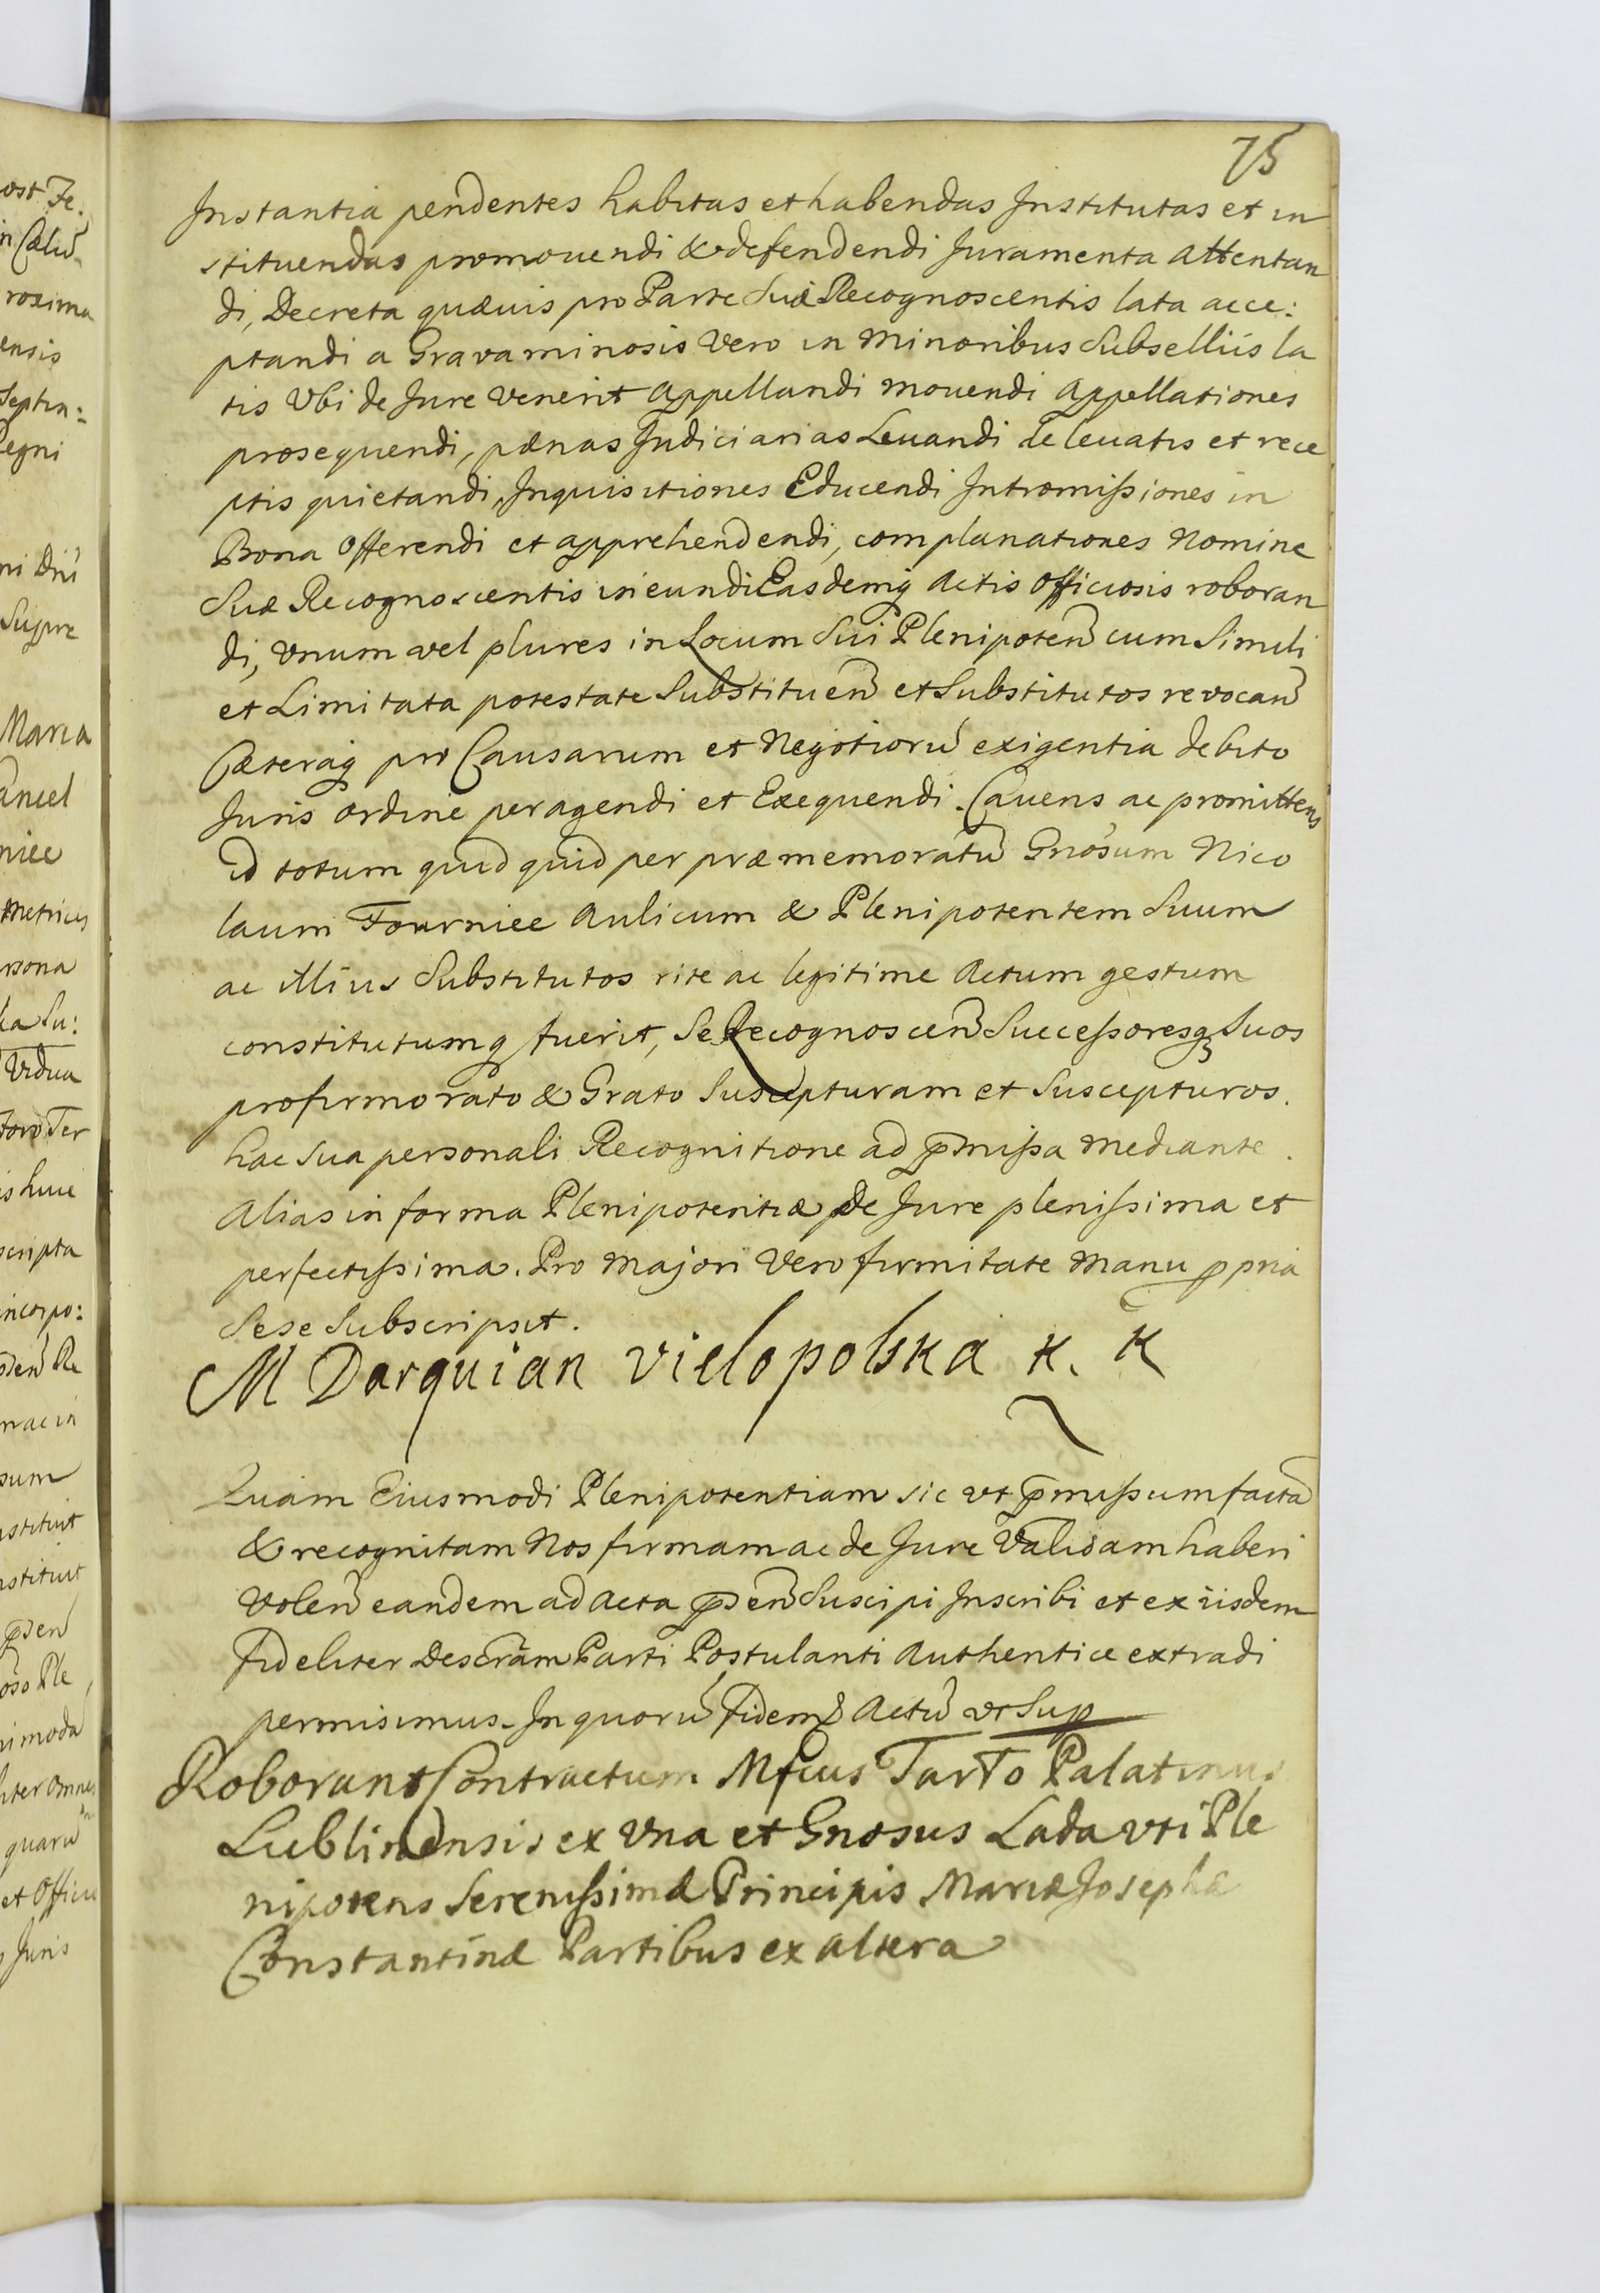 75
Instantia pendentes habitas et habendas Institutas et in
stituendas promouendi & defendendi Juramenta Attentan
di, Decreta quæuis pro Parte Suæ Recognoscentis lata acce:
ptandi a Gravaminosis Vero in Minoribus Subsellijs la
tis Vbi de Jure Venerit Appellandi mouendi Appellationes
prosequendi, pænas Judiciarias Leuandi de leuatis et rece
ptis quietandi, Inquisitiones Educendi Intromissiones in
Bona Offerendi et apprehendendi, complanationes Nomine
Suæ Recognoscentis ineundi Easdemq Actis Officiosis roboran
di, vnum vel plures in Locum Sui Plenipoten̄ cum Simili
et Limitata potestate Substituen̄ et Substitutos revocan̄
Cæteraq pro Causarum et Negotiorū exigentia debito
Juris ordine peragendi et Exequendi. Cauens ac promittens
id totum quidquid per præmemoratū Gnosum Nico
laum Fourniee Aulicum & Plenipotentem Suum
ac illius Substitutos rite ac legitime Actum gestum
constitutumq fuerit, Se Recognoscen̄ Successoresq Suos
pro firmo rato & Grato Suscepturam et Suscepturos.
hac Sua personali Recognitione ad p̄missa mediante.
Alias in forma Plenipotentiæ de Jure plenissima et
perfectissima. Pro Majori Vero firmitate Manu ppria
Sese Subscripsit.
M Darquian vielopolska K. K
Quam Eiusmodi Plenipotentiam sic vt p̄missum factā
& recognitam Nos firmam ac de Jure Validam haberi
Volen̄ eandem ad Acta p̄sen̄ Suscipi Inscribi et ex iisdem
fideliter Descrām Parti Postulanti Authentice extradi
permisimus. In quorū fidem Actū vt Sup
Roborant Contractum Mfcus Tarło Palatinus
Lublinensis ex Vna et Gnosus Łada vti Ple
nipotens Serenissimæ Principis Mariæ Josephæ
Constantinæ Partibus ex altera